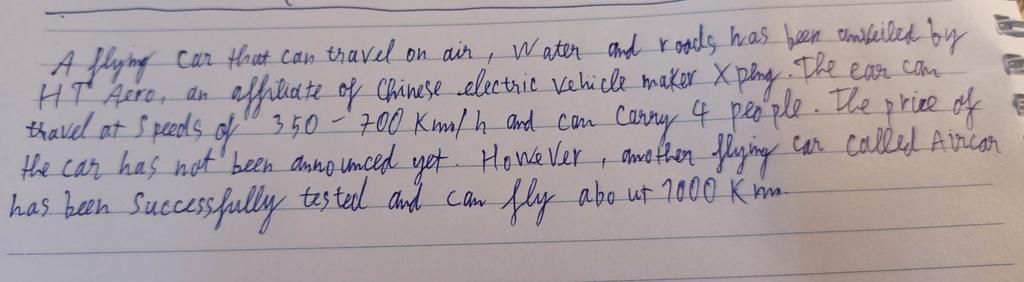 A flying car that can travel on air, Water and roads has been unveiled by
HT Aero, an affiliate of Chinese electric vehicle maker Xpeng. The car can
travel at speeds of 350 - 700 Km/h and can carry 4 people. The price of
the car has not been announced yet. However, another flying car called Aircar
has been Successfully tested and can fly about 1000 Km.